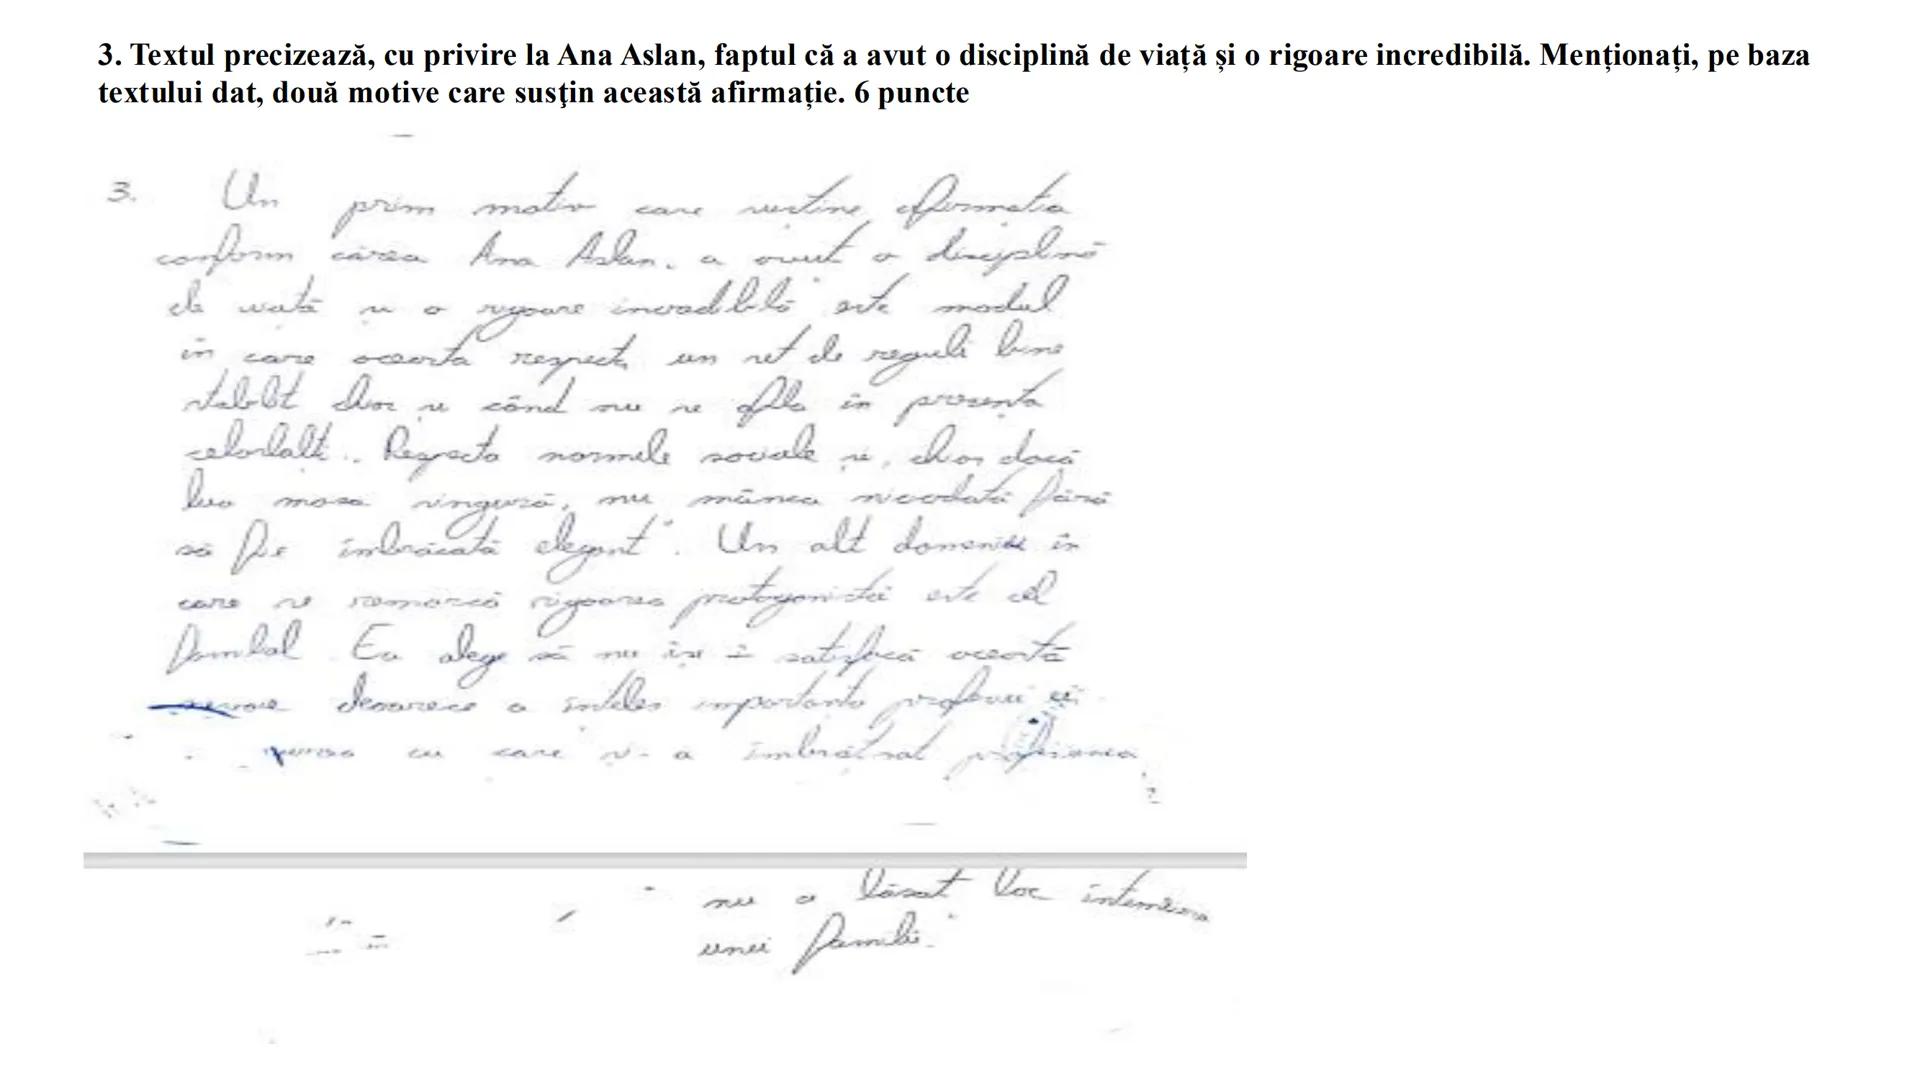 3. Textul precizează, cu privire la Ana Aslan, faptul că a avut o disciplină de viață și o rigoare incredibilă. Menționați, pe baza
textului dat, două motive care susţin această afirmație. 6 puncte
3. Un prim motiv care susține afirmația
conform căreia Ana Aslan „a avut o disciplină
de viață și o rigoare incredibilă" este modul
în care aceasta respectă un set de reguli bine
stabilit chiar și când nu se afla în prezența
celorlalți. Respecta normele sociale și, chiar dacă
lua masa singură, nu mânca niciodată fără
să fie îmbrăcată elegant". Un alt domeniu în
care se remarcă rigoarea protagonistei este cel
familial. Ea alege să nu își satisfacă această
nevoie deoarece a înțeles importanța profesiei ei
cu care și-a îmbrățișat profesiunea
nu a lăsat loc întemeierii
unei familii."